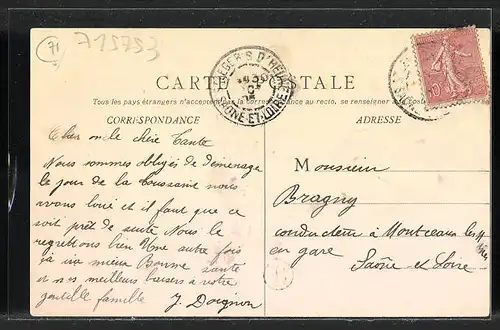 71
715753
CARTE POSTALE
Tous les pays étrangers n'acceptent pas la correspondance au recto, se renseigner à la
CORRESPONDANCE
ADRESSE
Cher oncle chère Tante
Nous sommes obligés de déménage
le jour de la Toussaint nous
avons loué et il faut que ce
soit prêt de suite Nous le
regrettons bien Une autre fois
ça ira mieux Bonne santé
et nos meilleurs baisers à votre
gentille famille
J. Doignon
Monsieur
Bragny
conducteur à Montceau les Mines
en gare
Saône-et-Loire
SAONE-ET-LOIRE